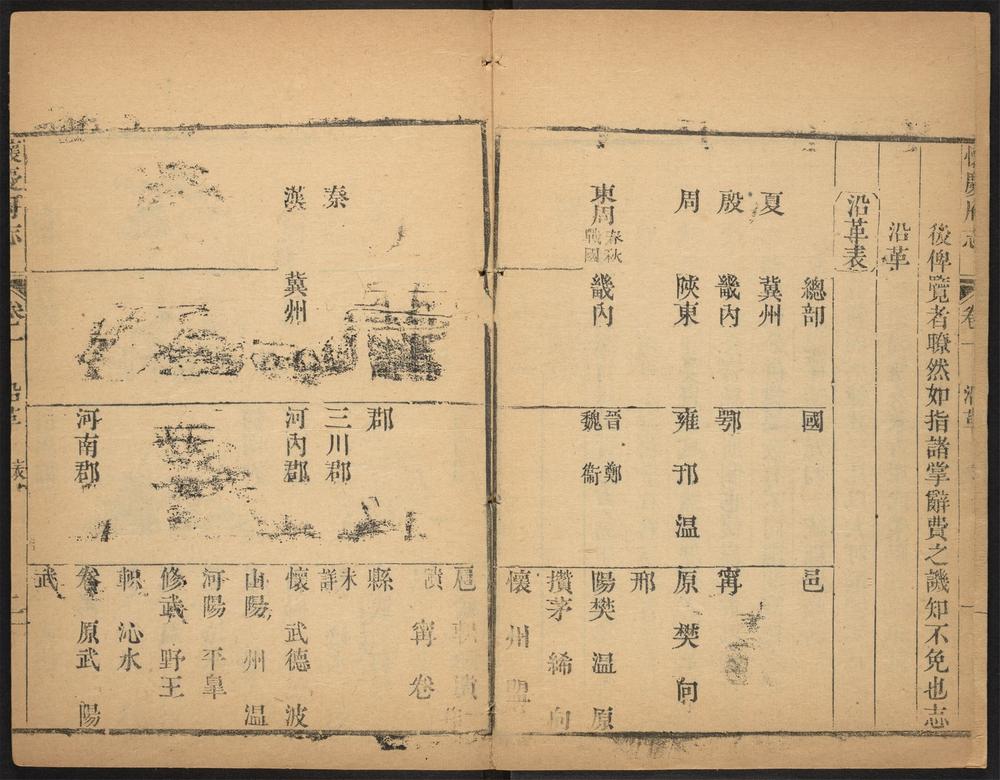 後俾覽者瞭然如指諸掌辭費之譏知不免也志
沿革
沿革表
總部 國 邑
夏 冀州
殷 畿內 鄂 甯
周 陝東 雍 邘 温 原 樊 向
邢
東周 春秋 戰國 畿內 晉 鄭 魏 衞 陽樊 温 原
攢茅 絺 向
懷 州
隤 甯 卷
郡 縣
秦 三川郡 未詳
漢 冀州 河內郡 懷 武德 波
山陽 州 温
河陽 平皐
修武 野王
軹 沁水
河南郡 卷 原武 陽
武
卷一 沿革